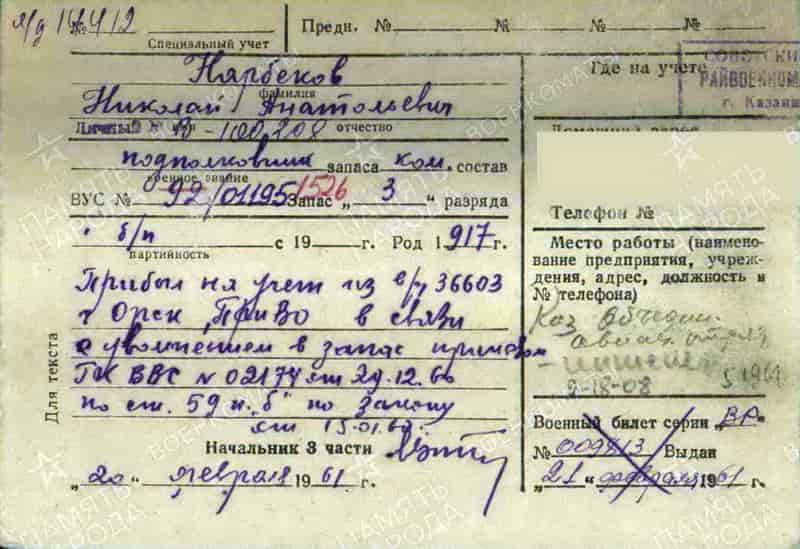 л/д 14412
№
Специальный учет
Предн. № № № №
Нарбеков
фамилия
Николай Анатольевич
отчество
Личный № -100208
подполковник запаса ком. состав
военное звание
ВУС № 92/01195 1526 Запас „ 3 “ разряда
б/п с 19 г. Род 1917 г.
партийность
Прибыл на учет из в/ч 36603
г Орск ПриВО в связи
с увольнением в запас приказом
ГК ВВС № 02174 от 29.12.60
по ст. 59 п. „б“ по закону
от 15.01.60.
Для текста
Начальник 3 части
„20“ февраля 1961 г.
Где на учете
СОВЕТСКИЙ
РАЙВОЕНКОМ
г. Казань
Домашний адрес
Телефон №
Место работы (наимено-
вание предприятия, учреж-
дения, адрес, должность и
№ телефона)
Каз Объедин.
авиа отряд
2-18-08
Военный билет серии „ВР“
№ 009813 Выдан
„21“ февраля 1961 г.
ПАМЯТЬ НАРОДА
ВОЕНКОМАТЫ